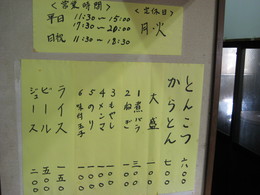 ＜営業時間＞
平日 11:30〜15:00
17:30〜20:00
日祝 11:30〜18:30
＜定休日＞
月・火
とんこつ 六〇〇
からとん 七〇〇
大盛 一〇〇
1煮バラ 三〇〇
2ねぎ 一〇〇
3もやし 一〇〇
4メンマ 一〇〇
5のり 一〇〇
6味付玉子 一〇〇
ライス 一五〇
ビール 五〇〇
ジュース 二〇〇